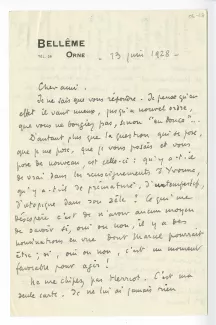 BELLÊME
TEL. 29 ORNE
13 juin 1928 -
Cher ami.
Je ne sais que vous répondre. Je pense qu'en
effet il vaut mieux, jusqu'à nouvel ordre,
que vous ne bougiez pas, sinon "en douce"...
D'autant plus que la question qui se pose,
que je me pose, que je vous posais et vous
pose de nouveau, est celle-ci : qu'y a-t-il
de vrai dans les renseignements d'Yvonne,
qu'y a-t-il de prématuré, d'intempestif,
d'utopique dans son zèle ? Ce qui me
désespère c'est de n'avoir aucun moyen
de savoir si, oui ou non, il y a des
nominations en vue dont Marcel pourrait
être ; si, oui ou non, c'est un moment
favorable pour agir !
Ne me chipez pas Herriot. C'est ma
seule carte. Je ne lui ai jamais rien